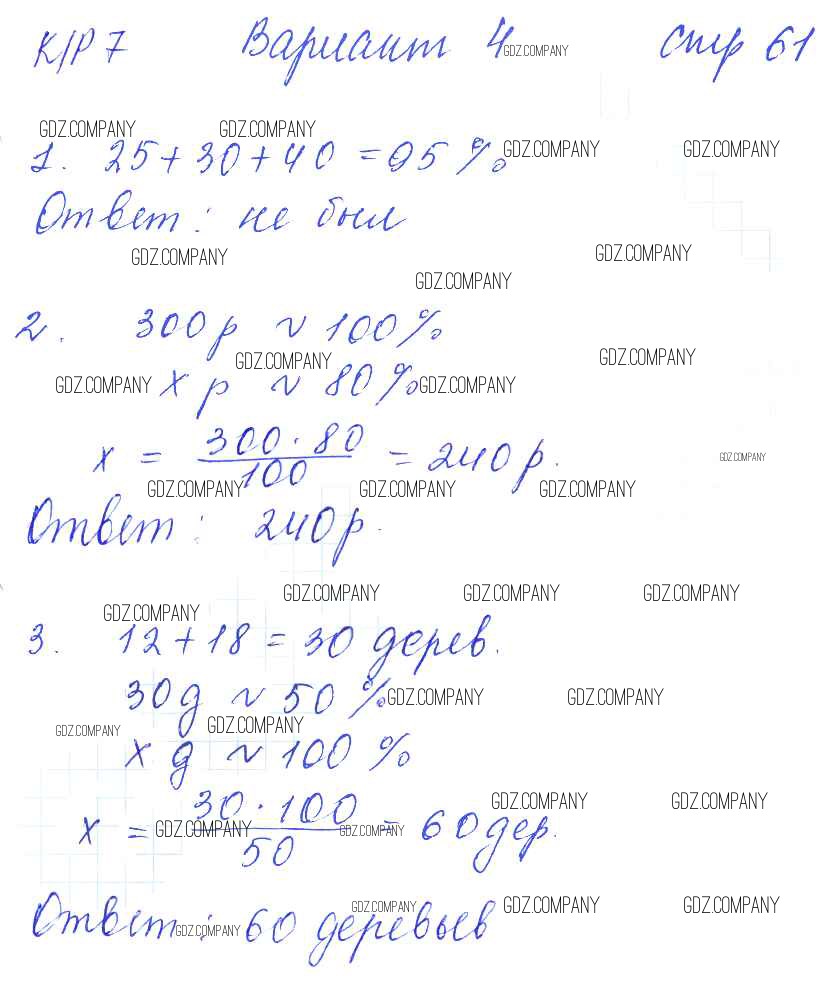 К/Р 7 Вариант 4 GDZ.COMPANY стр 61
GDZ.COMPANY GDZ.COMPANY
1. 25 + 30 + 40 = 95 % GDZ.COMPANY GDZ.COMPANY
Ответ: не был
GDZ.COMPANY GDZ.COMPANY
GDZ.COMPANY
2. 300 р ~ 100 %
GDZ.COMPANY GDZ.COMPANY
GDZ.COMPANY х р ~ 80 % GDZ.COMPANY
х = 300 · 80 / 100 = 240 р. GDZ.COMPANY
GDZ.COMPANY GDZ.COMPANY GDZ.COMPANY
Ответ: 240 р.
GDZ.COMPANY GDZ.COMPANY GDZ.COMPANY
GDZ.COMPANY
3. 12 + 18 = 30 дерев.
30 д ~ 50 % GDZ.COMPANY GDZ.COMPANY
GDZ.COMPANY GDZ.COMPANY
х д ~ 100 %
GDZ.COMPANY GDZ.COMPANY
х = 30 · 100 / 50 = 60 дер.
GDZ.COMPANY GDZ.COMPANY
GDZ.COMPANY GDZ.COMPANY GDZ.COMPANY
Ответ: GDZ.COMPANY 60 деревьев